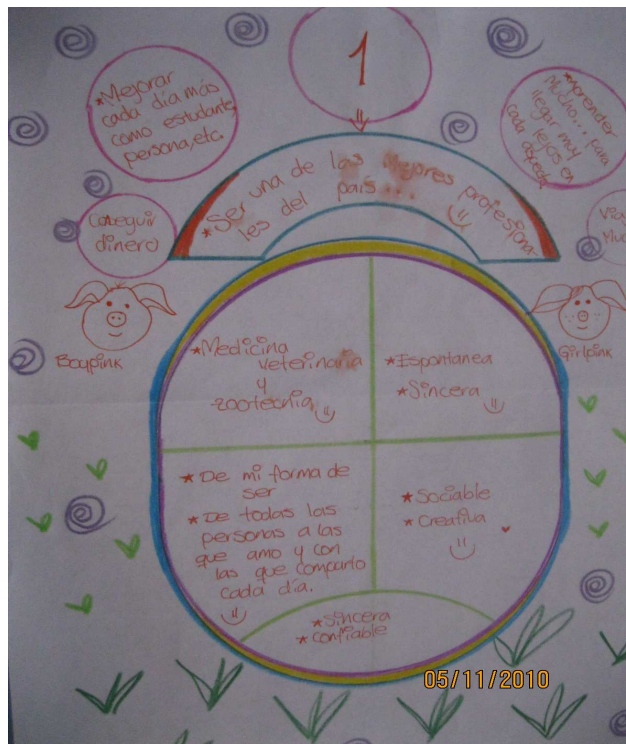 1
*Mejorar
cada día más
como estudiante,
persona, etc.
*Aprender
Mucho... para
llegar muy
lejos en
cada aspecto
*Ser una de las Mejores profesiona-
les del país...
Conseguir
dinero
Boypink
Girlpink
*Medicina
veterinaria
y
zootecnia
*Espontanea
*Sincera
*De mi forma de
ser
*De todas las
personas a las
que amo y con
las que comparto
cada día.
*Sociable
*Creativa
*Sincera
*confiable
05/11/2010